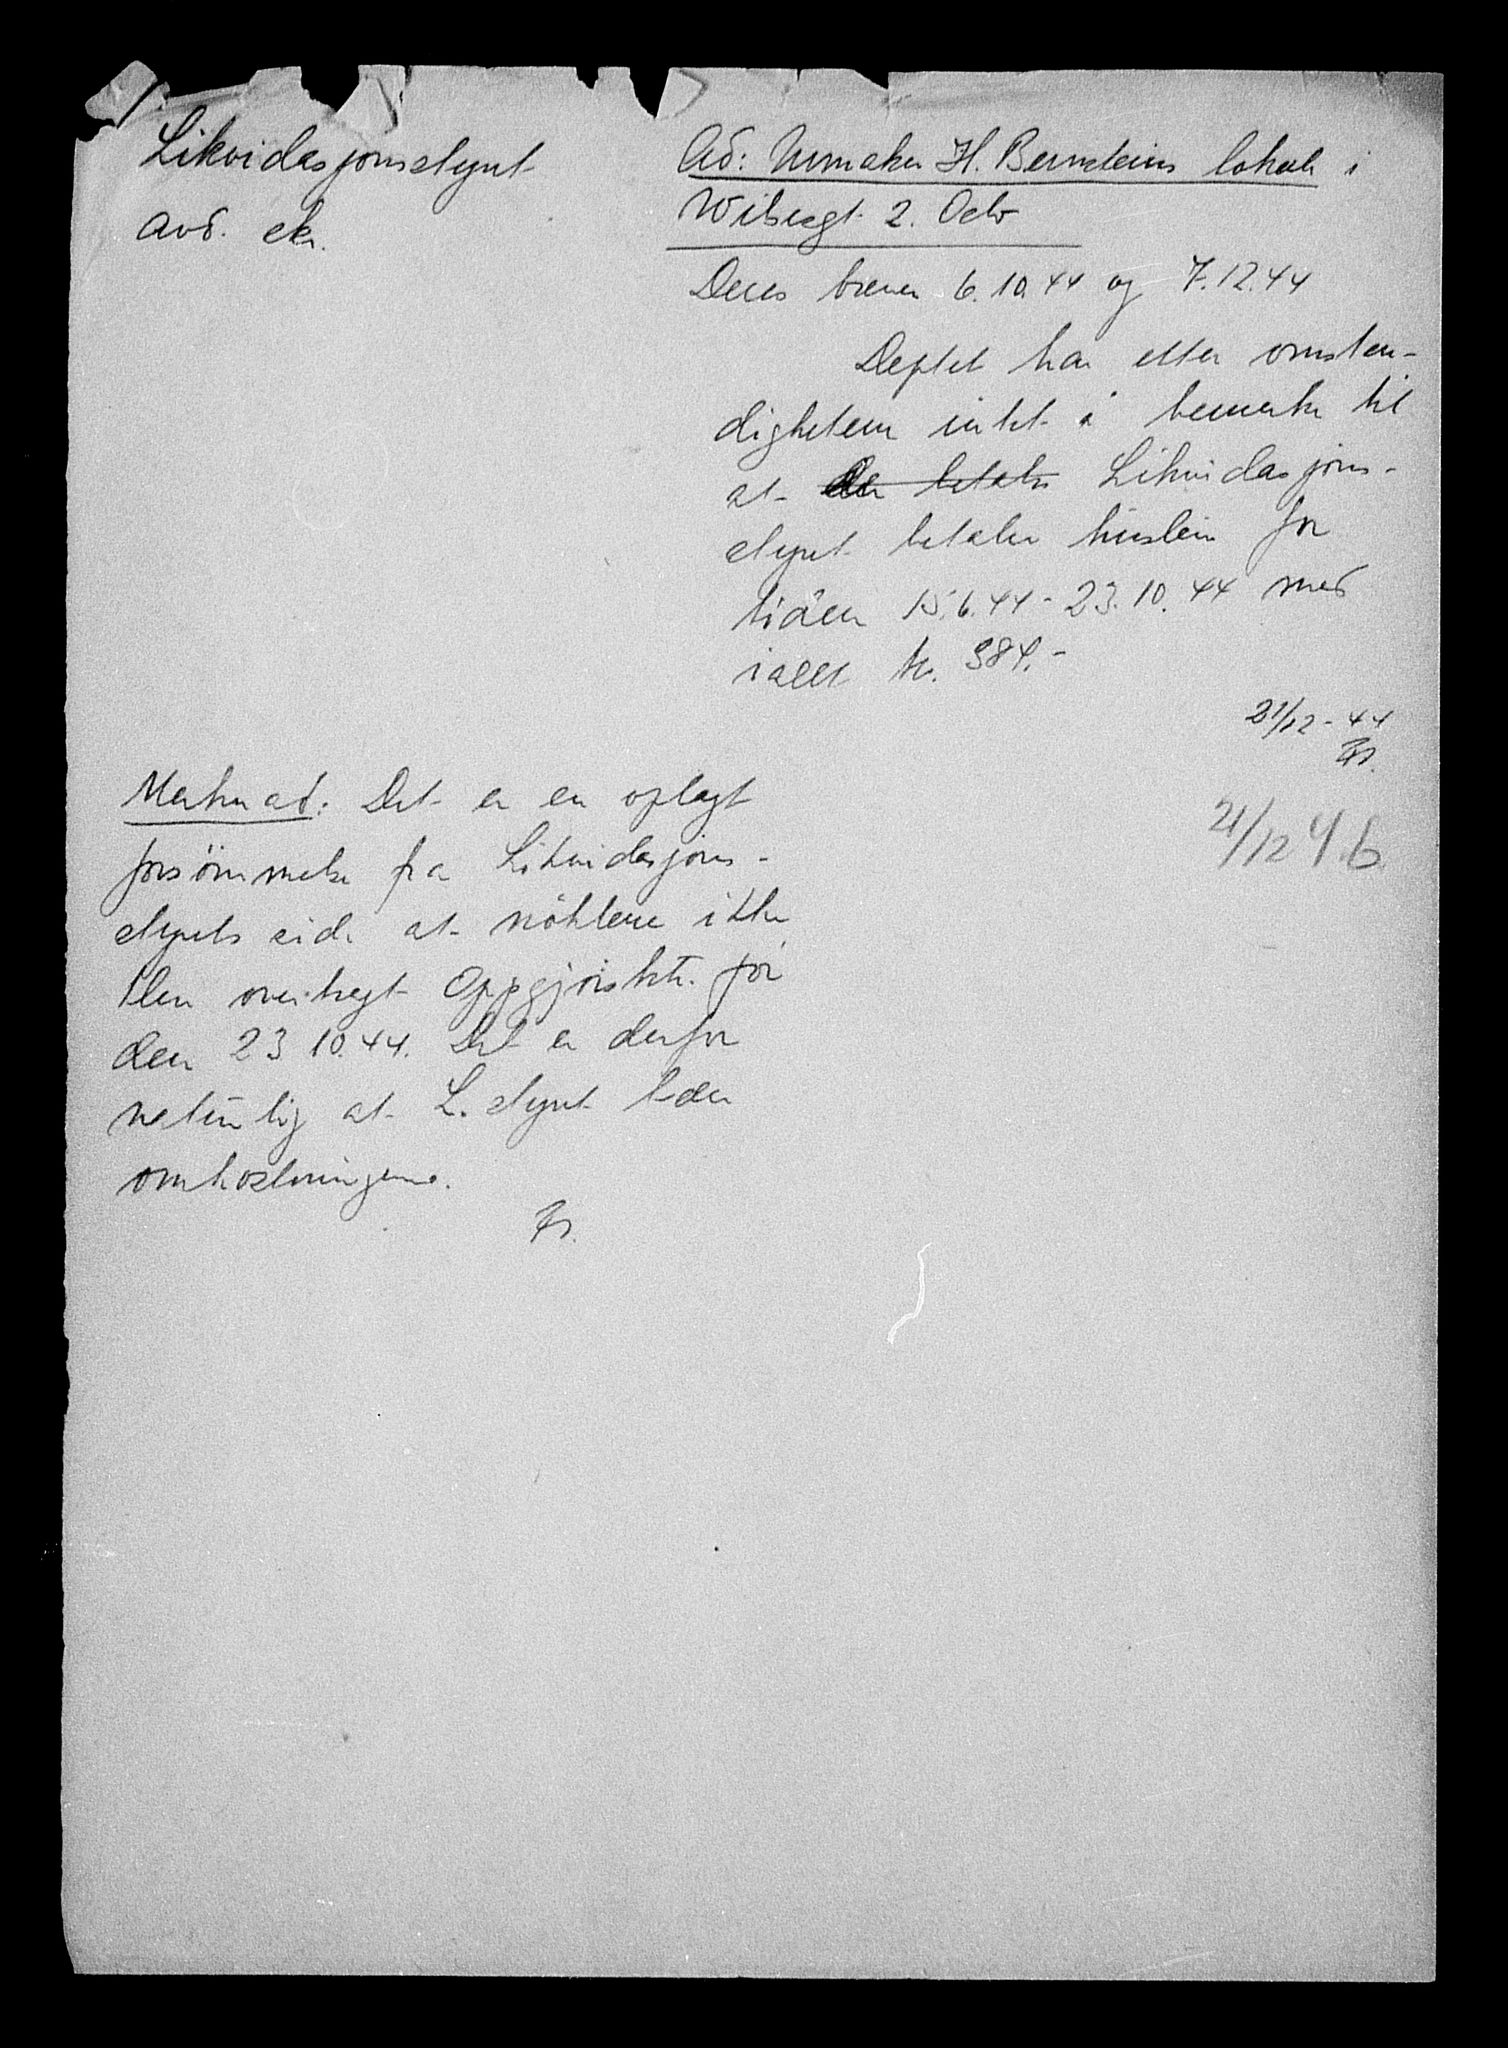 Likvidasjonsstyret
avd. ek.
Ad: Urmaker H. Bernsteins lokale i
Wibesgt 2. Oslo
Deres brever 6.10.44 og 7.12.44
Deptet har etter omsten-
dighetene intet å bemerke til
at der betales Likvidasjons-
styret betaler husleie for
tiden 15.6.44 - 23.10.44 med
i alt kr. 384.-
21/12 - 44
Merknad: Det er en oplagt
forsömmelse fra Likvidasjons-
styrets side at nöklene ikke
blev overbragt Oppgjörsktr. för
den 23 10.44. Det er derfor
naturlig at L. styret bær
omkostningene.
21/12 46